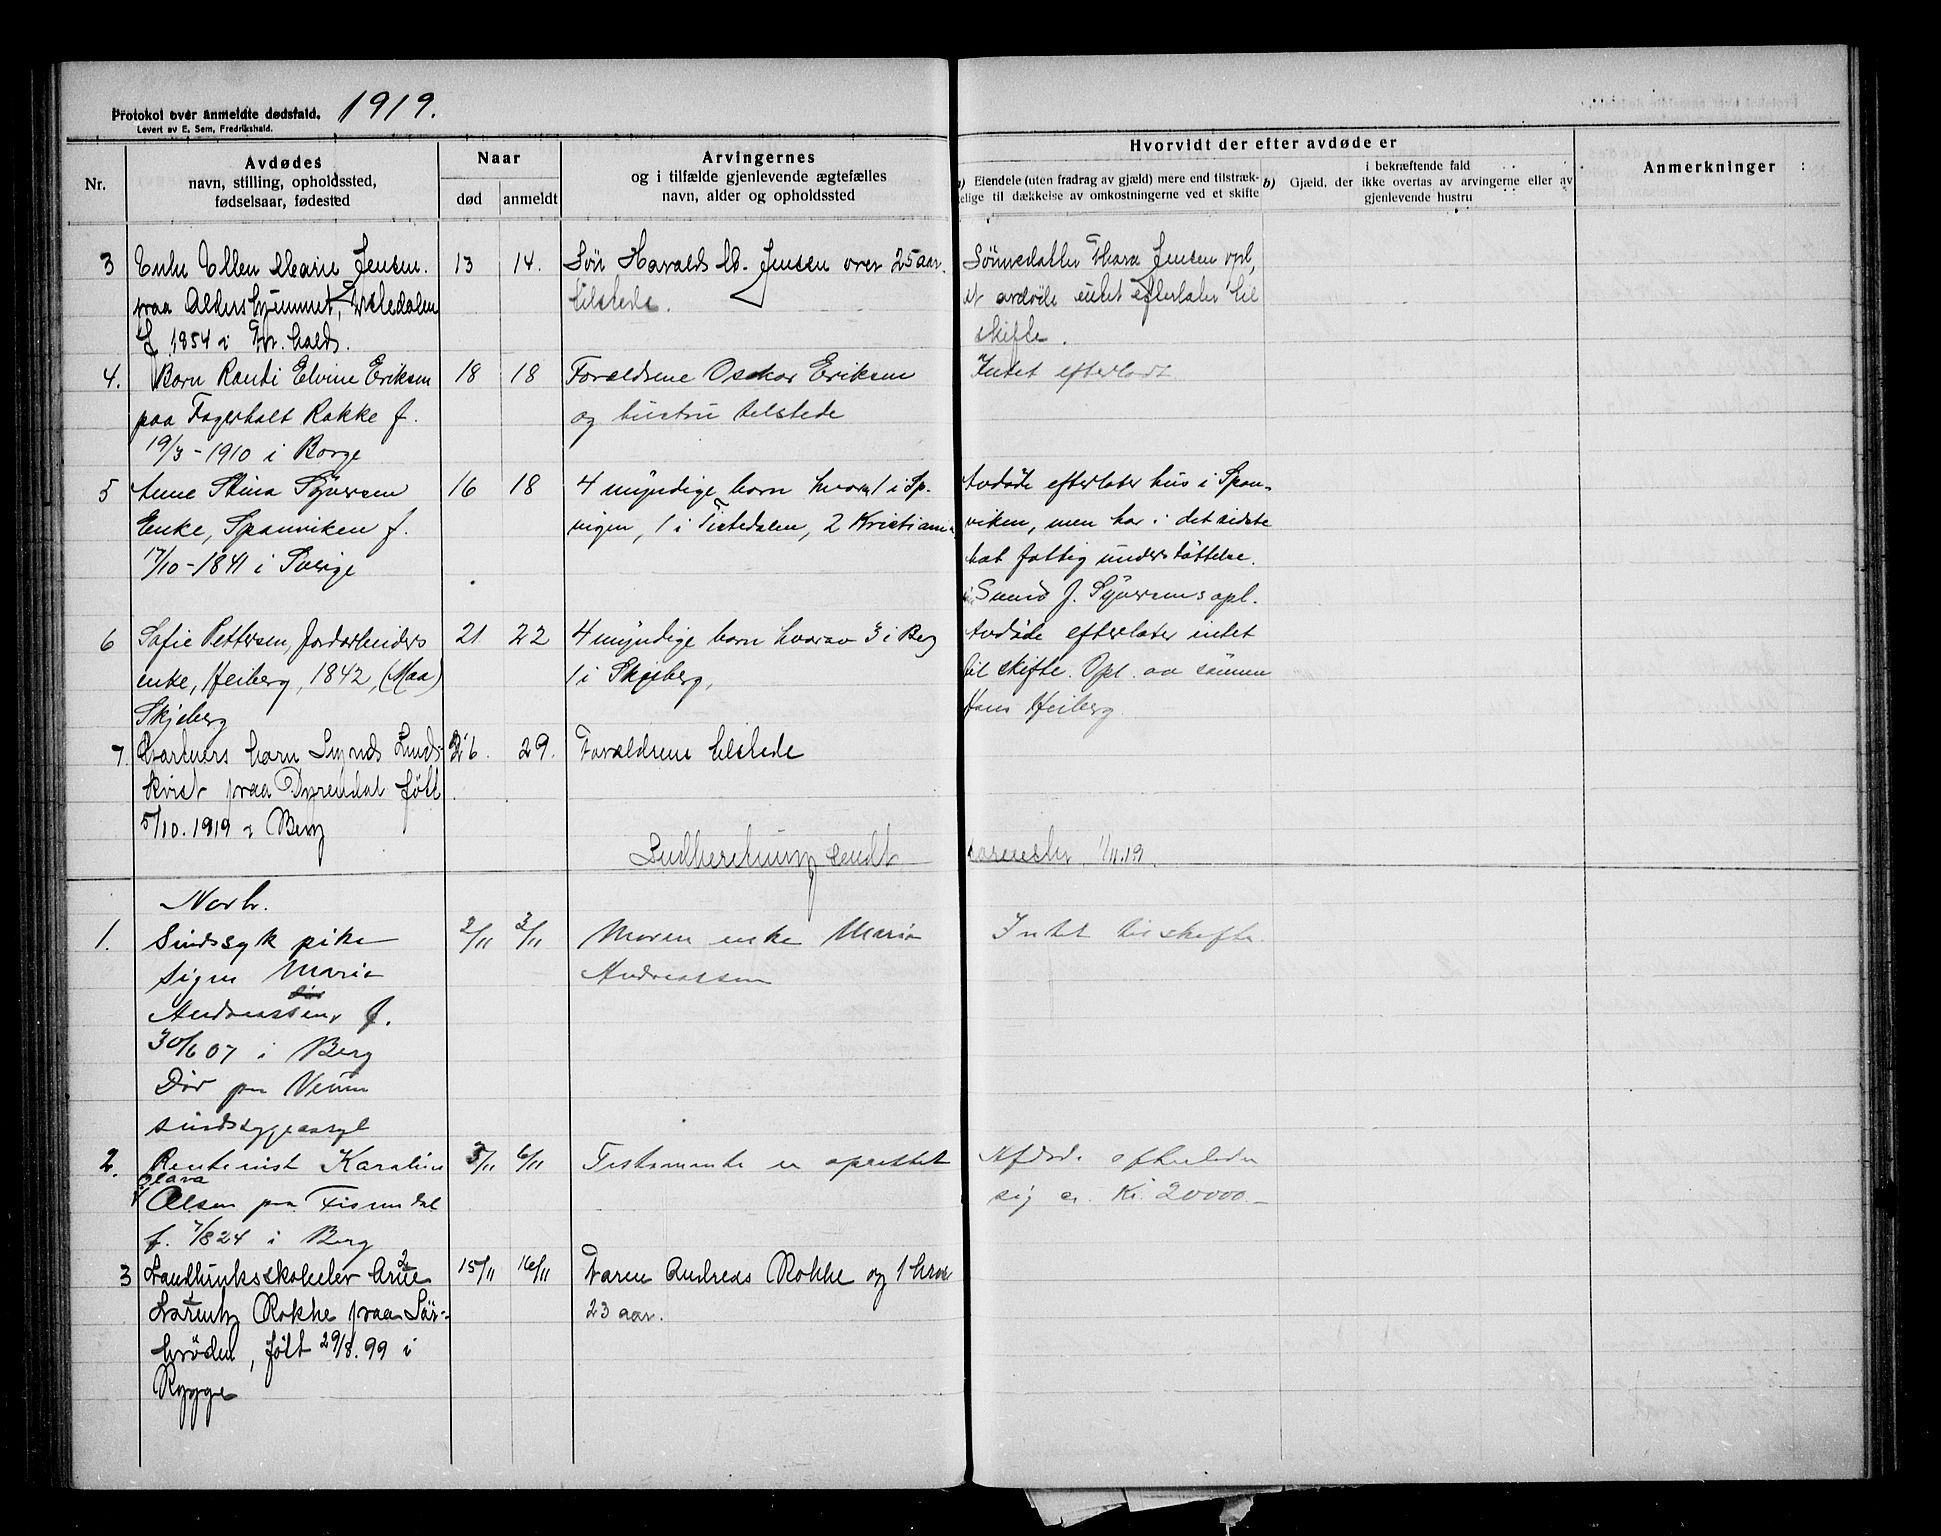 Protokol over anmeldte dødsfald. 1919.
Levert av E. Sem, Fredrikshald.
Nr.
Avdødes
navn, stilling, opholdssted,
fødselsaar, fødested
Naar
død
anmeldt
Arvingernes
og i tilfælde gjenlevende ægtefælles
navn, alder og opholdssted
Hvorvidt der efter avdøde er
a) Eiendele (uten fradrag av gjæld) mere end tilstræk-
kelige til dækkelse av omkostningerne ved et skifte
i bekræftende fald
b) Gjæld, der ikke overtas av arvingerne eller av
gjenlevende hustru
Anmerkninger
3 Enke Ellen Marie Jensen.
paa Aldershjemmet, Tistedalen
f 1854 i Fr.hald.
13 14.
Søn Harald M. Jensen over 25 aar.
tilstede.
Sønnedatter Thora Jensen opl,
at avdøde intet efterlater til
skifte.
4. Barn Randi Elvine Eriksen
paa Fagerholt Rokke f.
19/3-1910 i Borge
18 18
Forældrene Oskar Eriksen
og hustru tilstede
Intet efterladt
5 Anne Stina Syversen
Enke, Sponviken f.
17/10-1841 i Sverige
16 18
4 myndige barn hvorav 1 i Sp.
vigen, 1 i Tistedalen, 2 Kristiania
Avdøde efterlater hus i Spon-
viken, men har i det sidste
hat fattigunderstøttelse.
J. Syversens opl.
6 Sofie Pettersen, Jordarbeiders
enke, Heiberg, 1842, (Maa)
Skjeberg
21 22
4 myndige barn hvorav 3 i Berg
1 i Skjeberg,
Avdøde efterlater intet
til skifte. Opl. av sønnen
Hans Heiberg
7. Gartners barn Lund-
kvist paa Dyrendal født
5/10. 1919 i Berg
26. 29.
Forældrene tilstede
Indberetning sendt sorenskr. 1/11.19.
Novbr.
1. Sindssyk pike
Signe Maria
Andreassen, f.
30/6 07 i Berg
Død paa Veum
sindssygeasyl
2/11 3/11
Moren enke Maria
Andreassen
Intet til skifte.
2. Rentenist Karoline
Clara
Olsen paa Tisendal
f. 7/8 24 i Berg
3/11 6/11
Testamente er oprettet
Afdøde efterlader
sig ca. Kr. 20000.-
3 Landbruksskoleelev Arne
Lorentz Rokke paa Sør-
brøden, født 29/8.99 i
Rygge
15/11 16/11
Faren Andreas Rokke og 1 bror
23 aar.